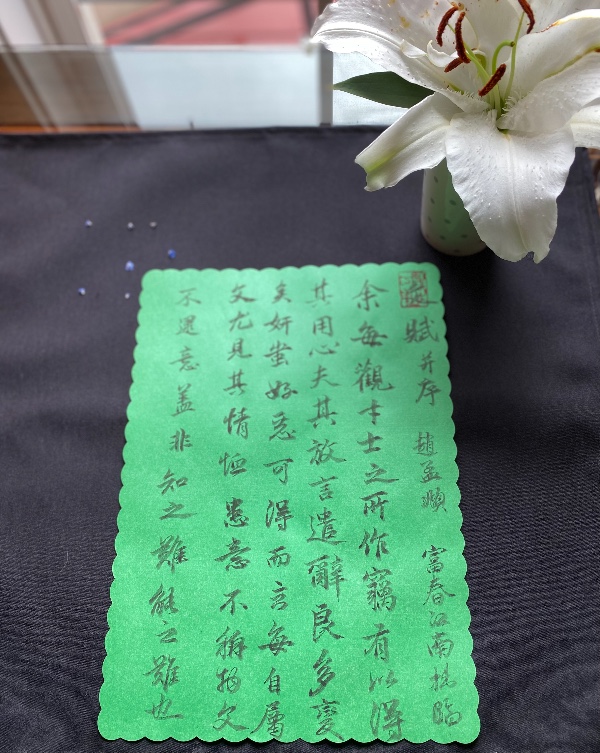 賦并序 趙孟頫 富春江南 臨
余每觀才士之所作竊有以得
其用心夫其放言遣辭良多變
矣妍蚩好惡可得而言每自屬
文尤見其情恒患意不稱物文
不逮意蓋非知之難能之難也